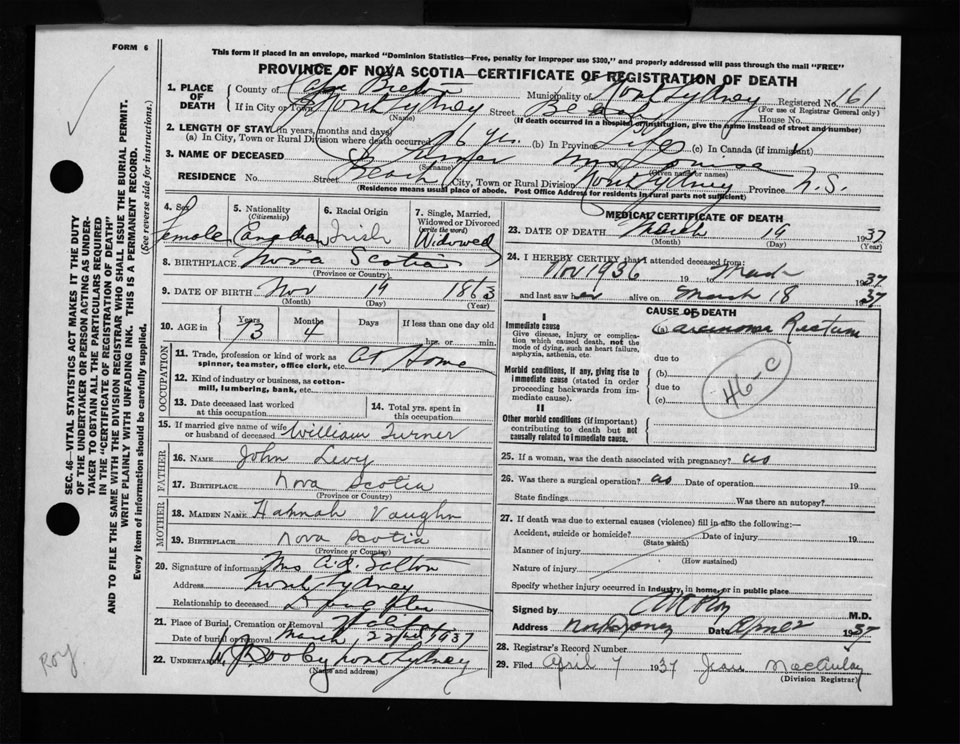 FORM 6
This form if placed in an envelope, marked "Dominion Statistics—Free, penalty for improper use $300," and properly addressed will pass through the mail "FREE"
PROVINCE OF NOVA SCOTIA—CERTIFICATE OF REGISTRATION OF DEATH
1. PLACE OF DEATH
County of Cape Breton Municipality of North Sydney Registered No. 161
(For use of Registrar General only)
If in City or Town North Sydney Street Beach House No.
(Name) (If death occurred in a hospital or institution, give the name instead of street and number)
2. LENGTH OF STAY (in years, months and days)
(a) In City, Town or Rural Division where death occurred 6 yrs. (b) In Province Life (c) In Canada (if immigrant)
3. NAME OF DECEASED Turner Mrs Louise
(Surname) (Given name or names)
RESIDENCE No. Street Beach City, Town or Rural Division North Sydney Province N.S.
(Residence means usual place of abode. Post Office Address for residents in rural parts not sufficient)
4. Sex Female
5. Nationality (Citizenship) Canadian
6. Racial Origin Irish
7. Single, Married, Widowed or Divorced (write the word) Widowed
8. BIRTHPLACE Nova Scotia
(Province or Country)
9. DATE OF BIRTH Nov 19 1863
(Month) (Day) (Year)
10. AGE in Years 73 Months 4 Days If less than one day hrs. or min.
OCCUPATION
11. Trade, profession or kind of work as spinner, teamster, office clerk, etc. At Home
12. Kind of industry or business, as cotton-mill, lumbering, bank, etc.
13. Date deceased last worked at this occupation
14. Total yrs. spent in this occupation
15. If married give name of wife or husband of deceased William Turner
FATHER
16. NAME John Levy
17. BIRTHPLACE Nova Scotia
(Province or Country)
MOTHER
18. MAIDEN NAME Hannah Vaughn
19. BIRTHPLACE Nova Scotia
(Province or Country)
20. Signature of informant Mrs A.J. Salton
Address North Sydney
Relationship to deceased Daughter
21. Place of Burial, Cremation or Removal
Date of burial or removal March 22nd 1937
22. UNDERTAKER North Sydney
(Name and address)
MEDICAL CERTIFICATE OF DEATH
23. DATE OF DEATH March 19 1937
(Month) (Day) (Year)
24. I HEREBY CERTIFY that I attended deceased from:
Nov 1936 19 to March 1937
and last saw her alive on March 18 1937
CAUSE OF DEATH
I
Immediate cause
Give disease, injury or complication which caused death, not the mode of dying, such as heart failure, asphyxia, asthenia, etc.
(a) Carcinoma Rectum
due to
Morbid conditions, if any, giving rise to immediate cause (stated in order proceeding backwards from immediate cause).
(b)
due to
(c)
46-C
II
Other morbid conditions (if important) contributing to death but not causally related to immediate cause.
25. If a woman, was the death associated with pregnancy? no
26. Was there a surgical operation? no Date of operation 19
State findings Was there an autopsy?
27. If death was due to external causes (violence) fill in also the following:—
Accident, suicide or homicide? Date of injury 19
(State which)
Manner of injury
(How sustained)
Nature of injury
Specify whether injury occurred in Industry, in home, or in public place
Signed by M.D.
Address North Sydney Date 1937
28. Registrar's Record Number
29. Filed April 7 1937 Jean MacAulay
(Division Registrar)
SEC. 46—VITAL STATISTICS ACT MAKES IT THE DUTY
OF THE UNDERTAKER OR PERSON ACTING AS UNDER-
TAKER TO OBTAIN ALL THE PARTICULARS REQUIRED
IN THE "CERTIFICATE OF REGISTRATION OF DEATH"
AND TO FILE THE SAME WITH THE DIVISION REGISTRAR WHO SHALL ISSUE THE BURIAL PERMIT.
WRITE PLAINLY WITH UNFADING INK. THIS IS A PERMANENT RECORD.
Every item of information should be carefully supplied. (See reverse side for instructions.)
Roy.